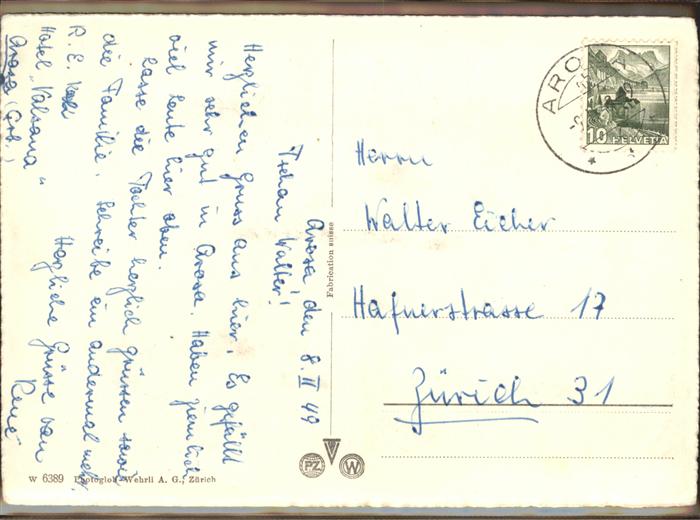 Arosa, den 8. II 49
Tschau Walter!
Herzlichen Gruss aus hier. Es gefällt
mir sehr gut in Arosa. Haben ziemlich
viel Leute hier oben.
Lasse die Tochter herzlich grüssen sowie
die Familie. Schreibe ein andermal mehr.
Herzliche Grüsse von
René
R. E.
Hotel „Valsana"
Arosa (Grb.)
Herrn
Walter Eicher
Hafnerstrasse 17
Zürich 31
AROSA
10 HELVETIA
Fabrication suisse
PZ W
W 6389 Photoglob-Wehrli A. G., Zürich